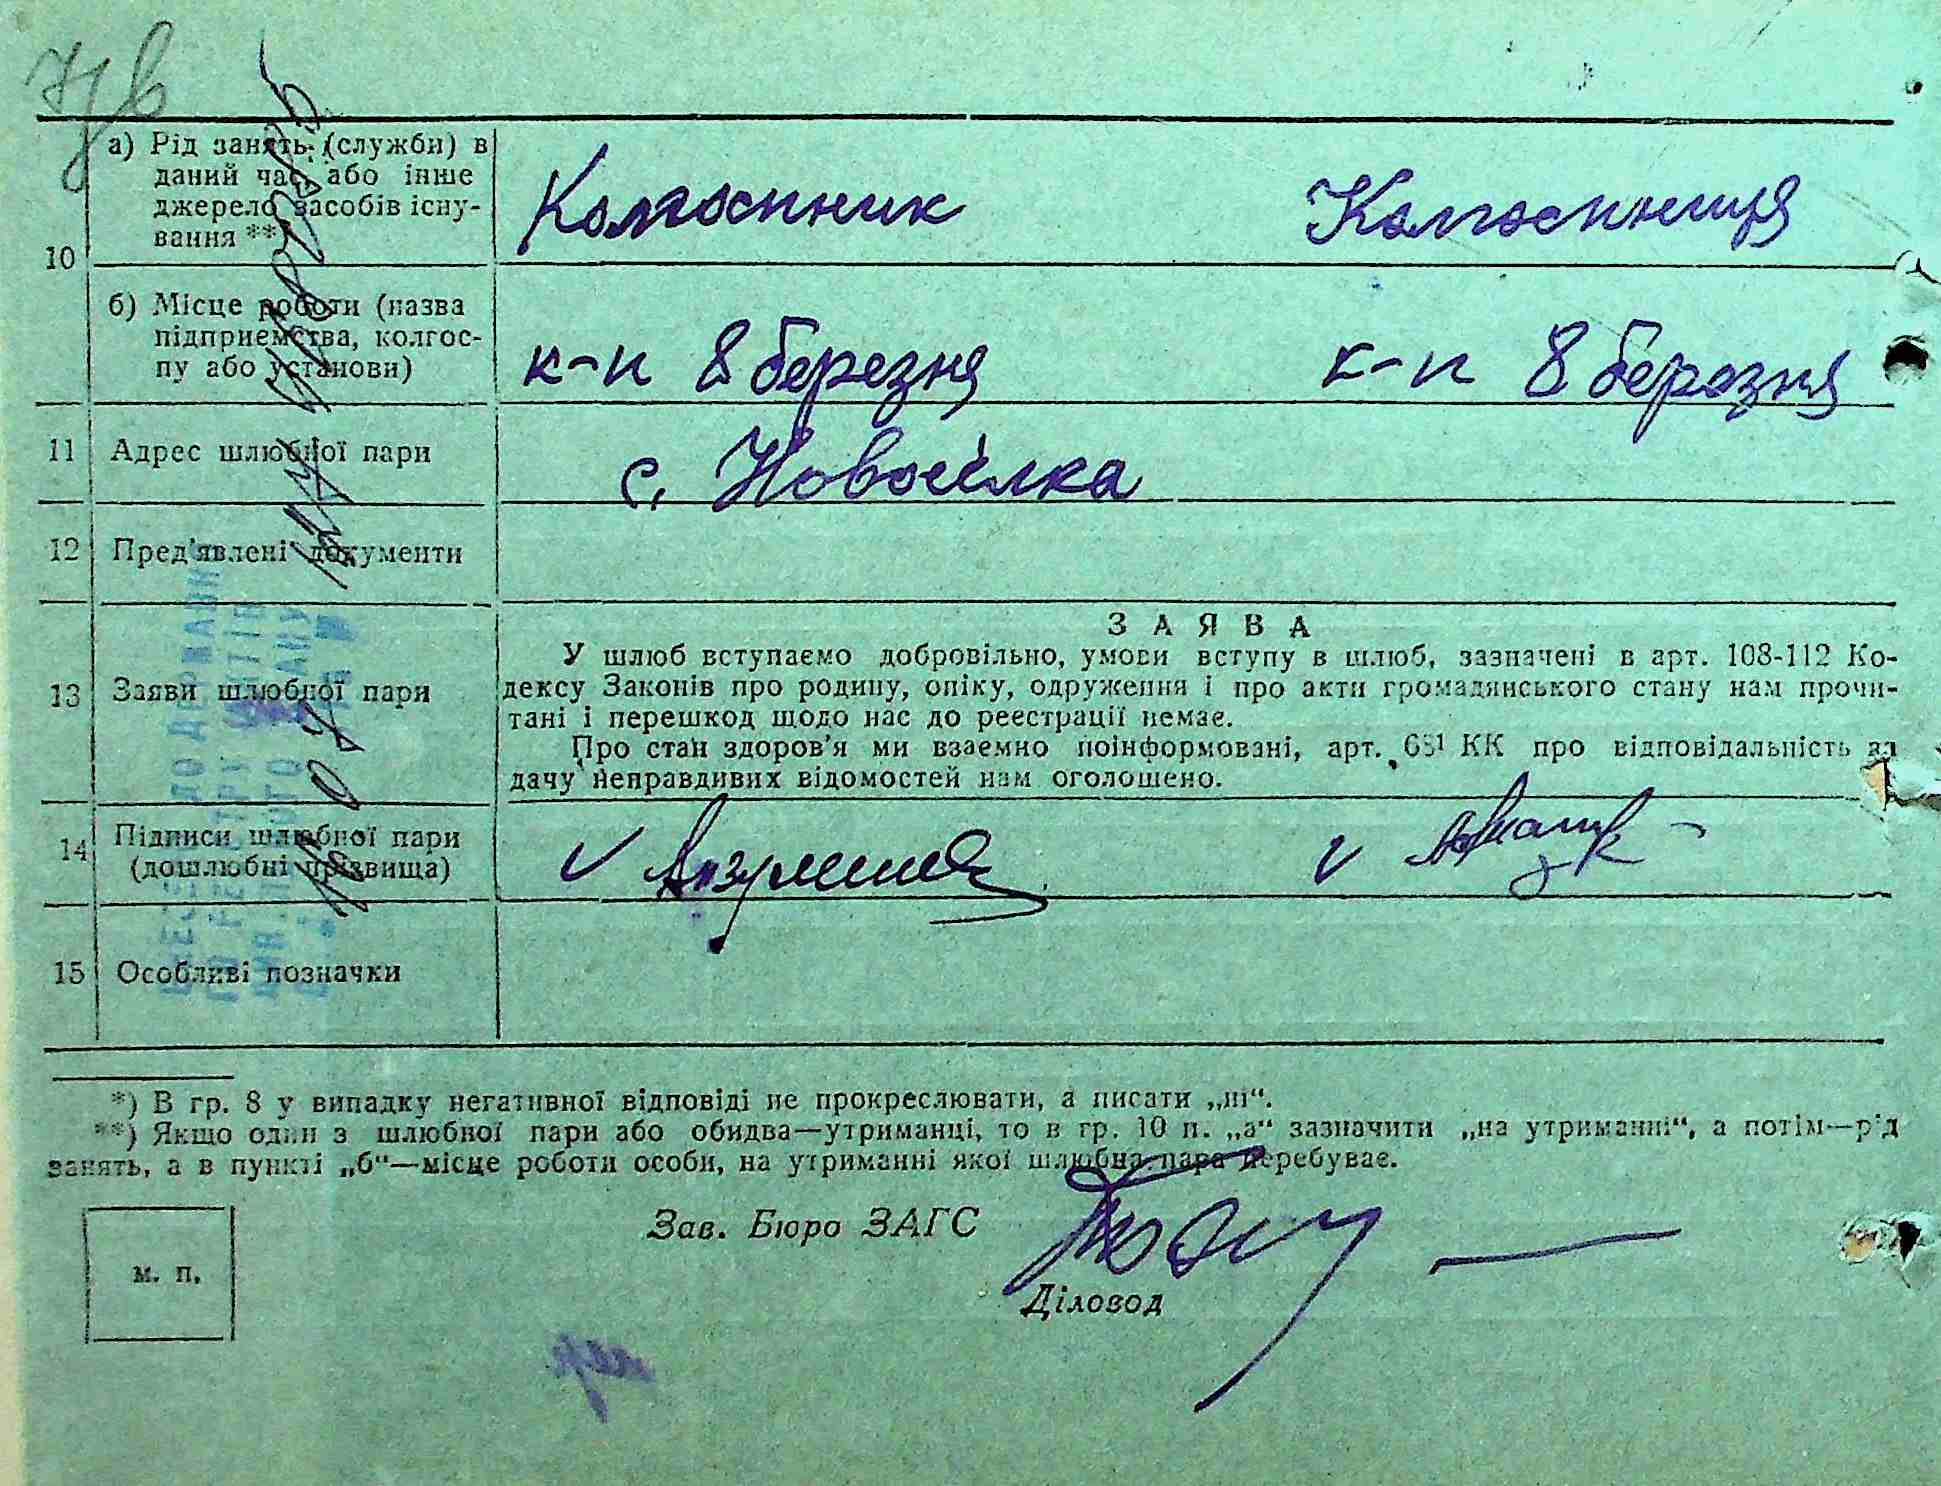 10
а) Рід занять (служби) в
даний час, або інше
джерело засобів існу-
вання **)
Колгоспник
Колгоспниця
б) Місце роботи (назва
підприємства, колгос-
пу або установи)
к-п 8 березня
к-п 8 березня
11 Адрес шлюбної пари
с. Новосілка
12 Пред'явлені документи
13 Заяви шлюбної пари
ЗАЯВА
У шлюб вступаємо добровільно, умови вступу в шлюб, зазначені в арт. 108-112 Ко-
дексу Законів про родину, опіку, одруження і про акти громадянського стану нам прочи-
тані і перешкод щодо нас до реєстрації немає.
Про стан здоров'я ми взаємно поінформовані, арт. КК про відповідальність за
дачу неправдивих відомостей нам оголошено.
14 Підписи шлюбної пари
(дошлюбні прізвища)
15 Особливі позначки
*) В гр. 8 у випадку негативної відповіді не прокреслювати, а писати „ні“.
**) Якщо один з шлюбної пари або обидва—утриманці, то в гр. 10 п. „а“ зазначити „на утриманні“, а потім—рід
занять, а в пункті „б“—місце роботи особи, на утриманні якої шлюбна пара перебуває.
Зав. Бюро ЗАГС
м. п.
Діловод